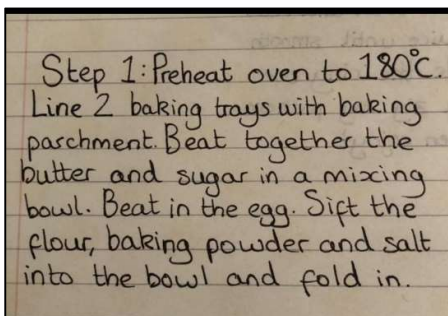 Step 1: Preheat oven to 180°C.
Line 2 baking trays with baking
parchment. Beat together the
butter and sugar in a mixing
bowl. Beat in the egg. Sift the
flour, baking powder and salt
into the bowl and fold in.